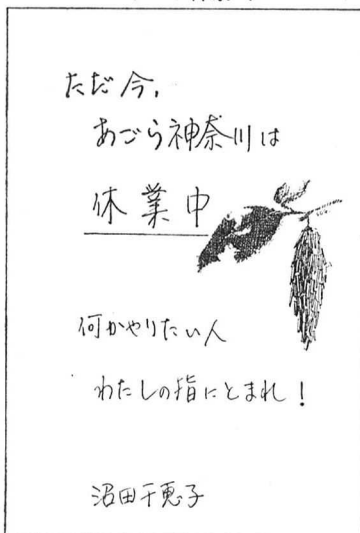 ただ今,
あごら神奈川は
休業中
何かやりたい人
わたしの指にとまれ!
沼田千恵子